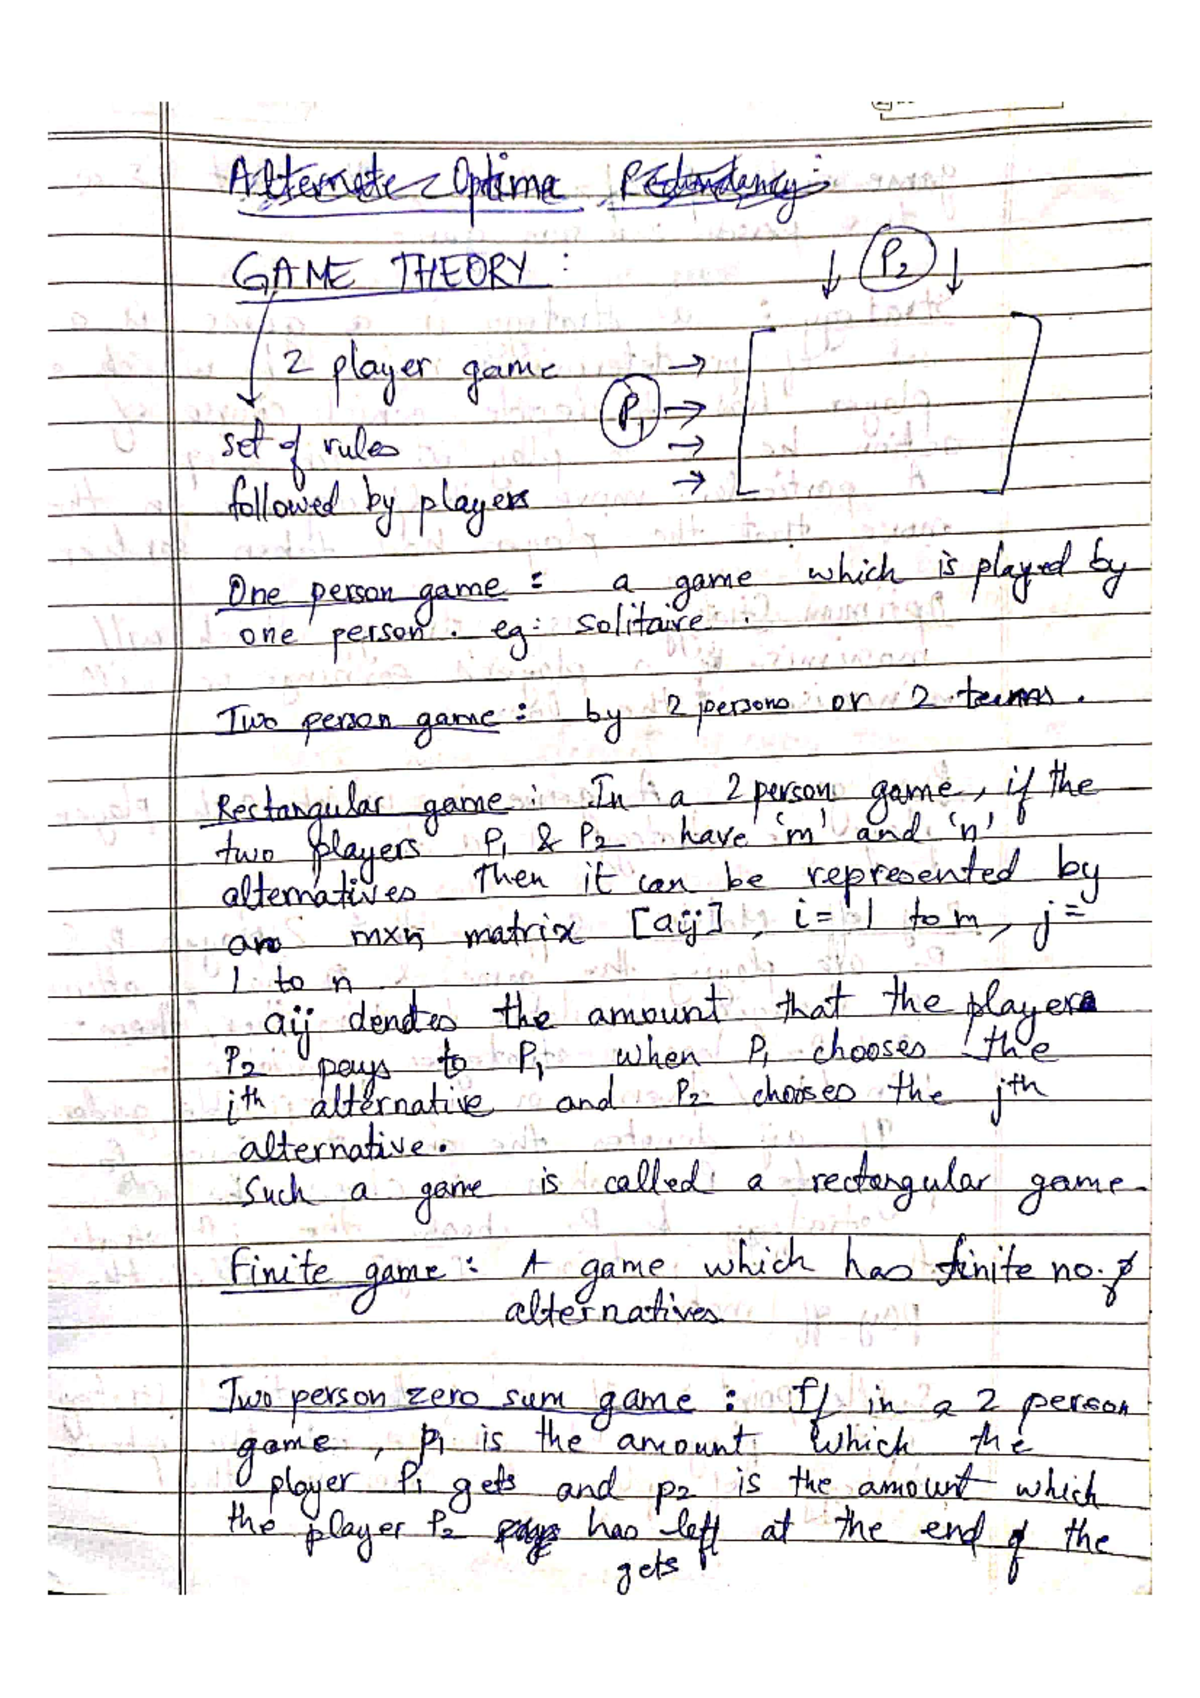 Alternate Optima Redundancy:
GAME THEORY :
↓ P2 ↓
2 player game
P1
set of rules
followed by players
One person game : a game which is played by
one person. eg: solitaire.
Two person game : by 2 persons or 2 teams.
Rectangular game : In a 2 person game, if the
two players P1 & P2 have 'm' and 'n'
alternatives Then it can be represented by
an mxn matrix [aij], i = 1 to m, j =
1 to n
aij denotes the amount that the player
P2 pays to P1 when P1 chooses the
ith alternative and P2 chooses the jth
alternative.
Such a game is called a rectangular game.
Finite game : A game which has finite no. of
alternatives
Two person zero sum game : If in a 2 person
game, p1 is the amount which the
player P1 gets and p2 is the amount which
the player P2 has left at the end of the
gets